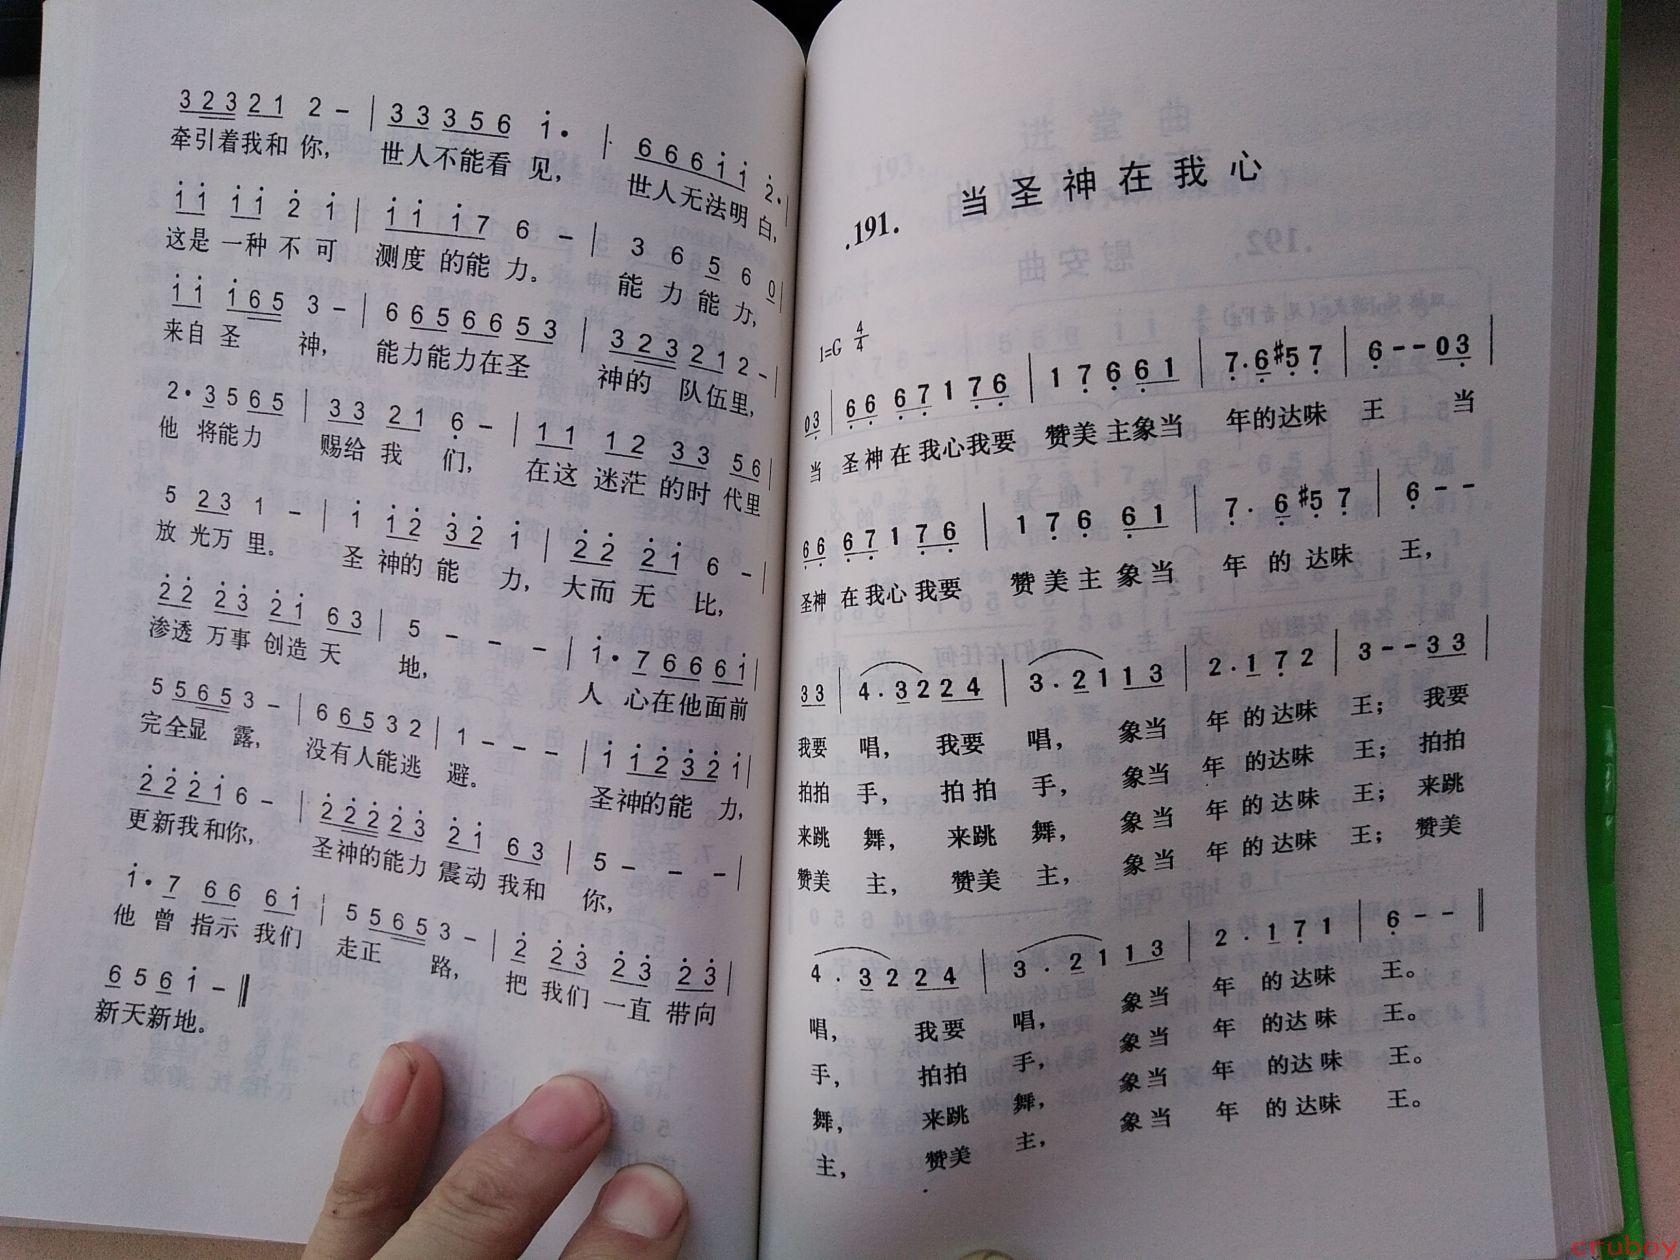 3 2 3 2 1 2 – | 3 3 3 5 6 i· | 6 6 6 i i 2·|
牵引着我和 你, 世人不能看 见, 世人无法明 白,
i i i i 2 i | i i i 7 6 – | 3 6 5 6 0
这是 一种 不 可 测度 的能 力。 能 力 能 力,
i i i 6 5 3 – | 6 6 5 6 6 5 3 | 3 2 3 2 1 2 –|
来自 圣 神, 能力能力在圣 神的 队伍里,
2· 3 5 6 5 | 3 3 2 1 6 – | 1 1 1 2 3 3 5 6|
他 将能力 赐给 我 们, 在这 迷茫 的时 代里
5 2 3 1 – | i i 2 3 2 i | 2 2 2 i 6 –|
放 光万 里。 圣 神的 能 力, 大而 无 比,
2 2 2 3 2 i 6 3 | 5 – – – | i· 7 6 6 6 i|
渗透 万事 创造 天 地, 人 心在他面前
5 5 6 5 3 – | 6 6 5 3 2 | 1 – – – | i i 2 3 2 i|
完全显 露, 没有人能逃 避。 圣神的能 力,
2 2 2 i 6 – | 2 2 2 2 3 2 i 6 3 | 5 – – –|
更新我和你, 圣神的能力 震动 我和 你,
i· 7 6 6 6 i | 5 5 6 5 3 – | 2 2 3 2 3 2 3|
他 曾 指示 我们 走正 路, 把 我们 一直 带向
6 5 6 i – ‖
新天新地。
191. 当圣神在我心
1=G 4/4
0 3 | 6 6 6 7 1 7 6 | 1 7 6 6 1 | 7· 6 #5 7 | 6 – – 0 3 |
当 圣神 在 我心我要 赞美 主象当 年的达味 王 当
6 6 6 7 1 7 6 | 1 7 6 6 1 | 7· 6 #5 7 | 6 – –
圣神 在 我心 我要 赞 美 主 象当 年 的 达味 王,
3 3 | 4· 3 2 2 4 | 3· 2 1 1 3 | 2· 1 7 2 | 3 – – 3 3 |
我要 唱, 我要 唱, 象当 年 的 达味 王; 我要
拍拍 手, 拍 拍 手, 象当 年 的达味 王; 拍拍
来跳 舞, 来跳 舞, 象当 年 的 达味 王; 来跳
赞美 主, 赞美 主, 象当 年 的 达味 王; 赞美
4· 3 2 2 4 | 3· 2 1 1 3 | 2· 1 7 1 | 6 – – ‖
唱, 我要 唱, 象当 年 的达味 王。
手, 拍拍 手, 象当 年 的达味 王。
舞, 来跳 舞, 象当 年 的达味 王。
主, 赞美 主, 象当 年 的 达味 王。
cruboy